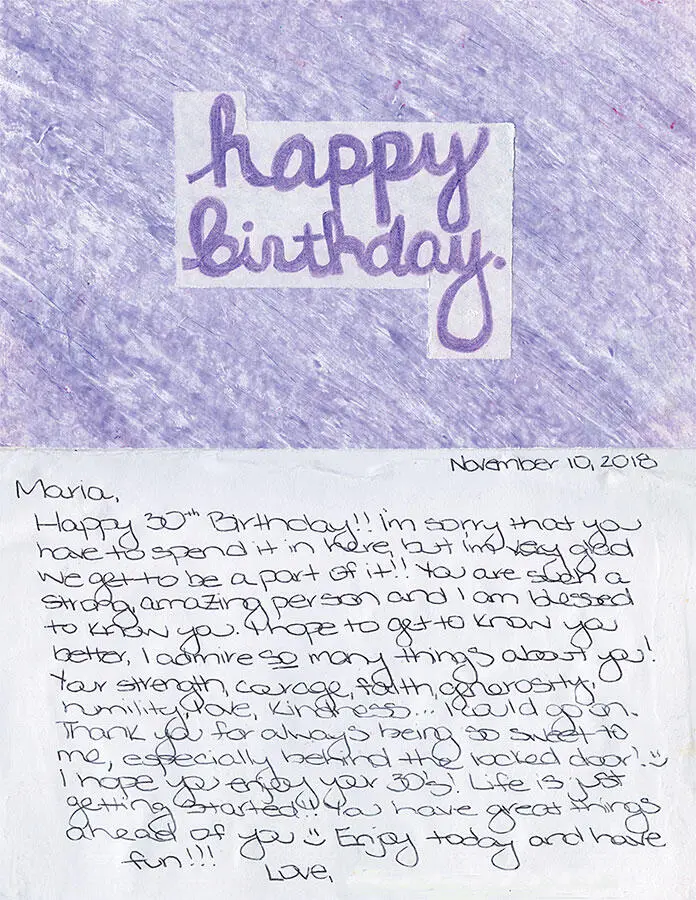 happy
birthday.
November 10, 2018
Maria,
Happy 30th Birthday!! I'm sorry that you
have to spend it in here, but I'm very glad
we get to be a part of it!! You are such a
strong, amazing person and I am blessed
to know you. I hope to get to know you
better, I admire so many things about you!
Your strength, courage, faith, generosity,
humility, love, kindness... I could go on.
Thank you for always being so sweet to
me, especially behind the locked door! :)
I hope you enjoy your 30's! Life is just
getting started!! You have great things
ahead of you :) Enjoy today and have
fun!!!
Love,